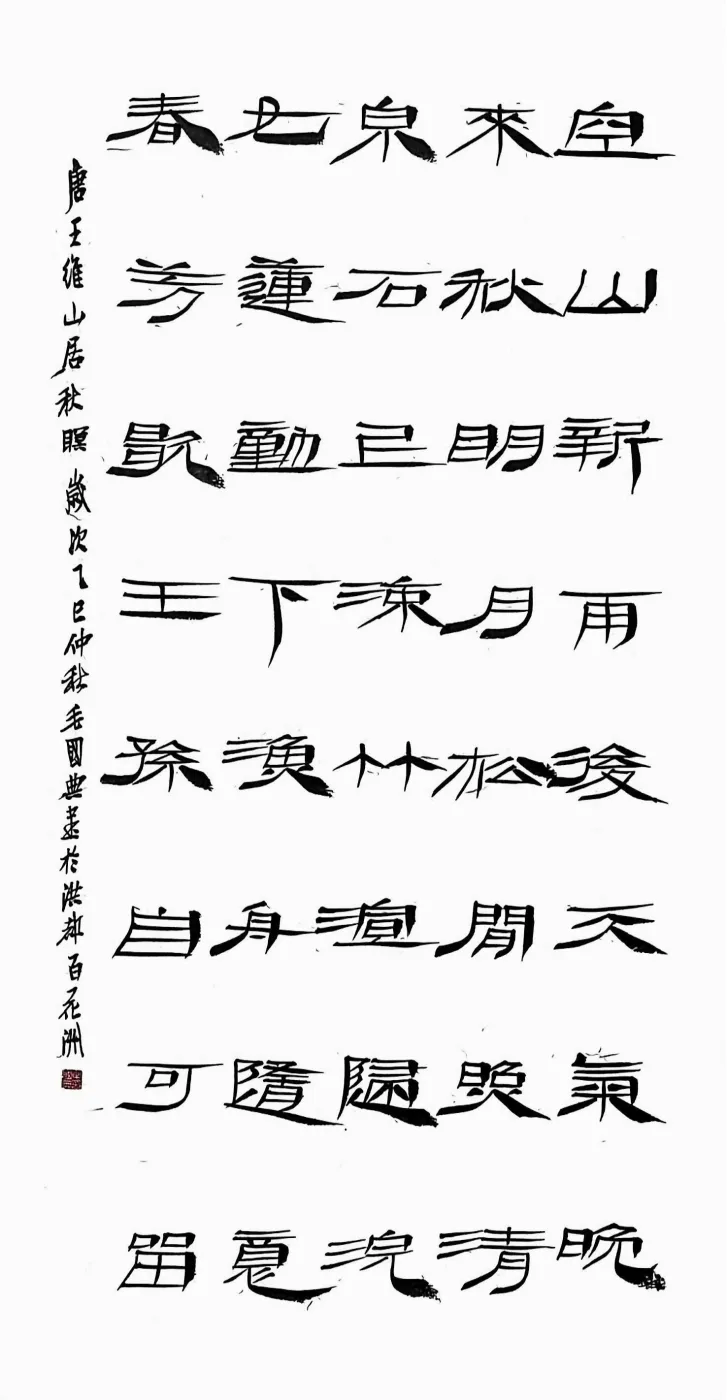 空山新雨後天氣晚
來秋明月松間照清
泉石上流竹渲歸浣
女蓮動下漁舟隨意
春芳歇王孫自可留
唐王維山居秋暝歲次乙巳仲秋毛國典書於洪都百花洲